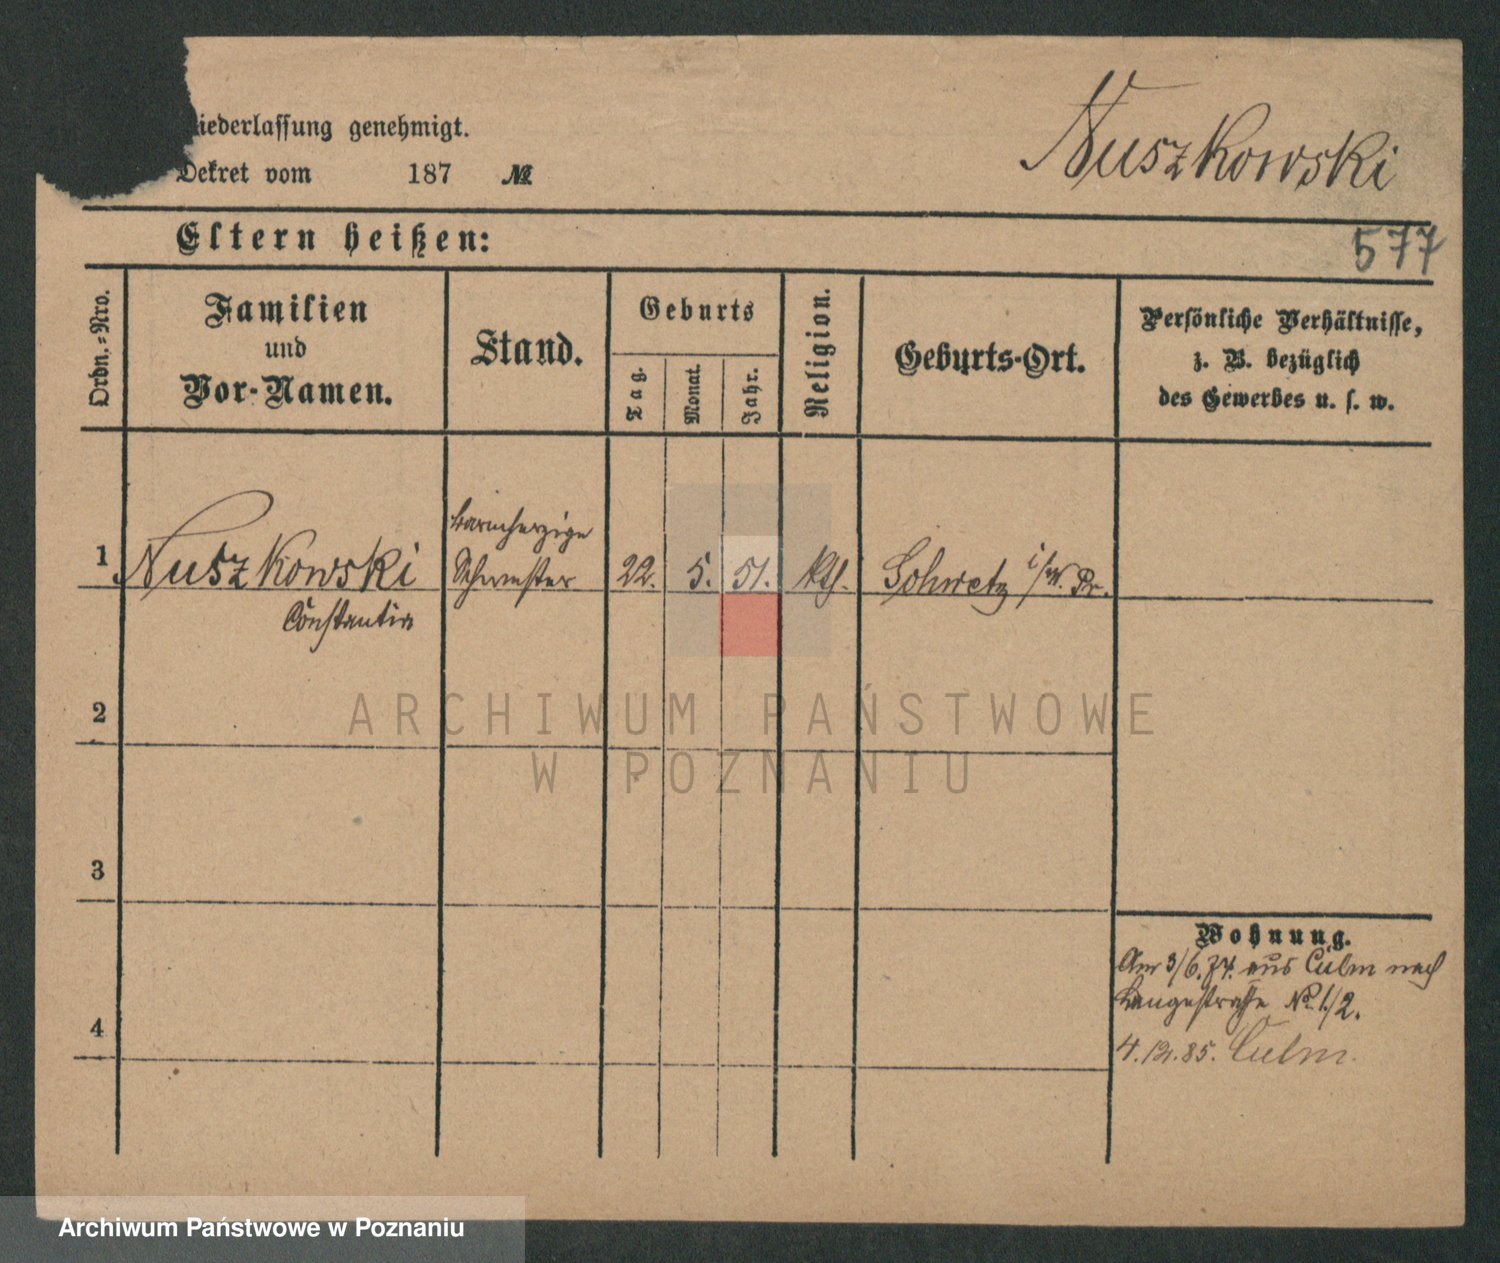 iederlassung genehmigt.
Nuszkowski
Dekret vom 187 №
Eltern heißen:
577
Ordn.-Nro.
Familien
und
Vor-Namen.
Stand.
Geburts
Tag.
Monat.
Jahr.
Religion.
Geburts-Ort.
Persönliche Verhältnisse,
z. B. bezüglich
des Gewerbes u. s. w.
barmherzige
1 Nuszkowski Schwester 22. 5. 51. kth. Schwetz i/W. Pr.
Constantia
2
ARCHIWUM PAŃSTWOWE
W POZNANIU
3
Wohnung.
Am 3/6.74. aus Culm nach
Langestraße No 1/2.
4
4.12.85. Culm.
Archiwum Państwowe w Poznaniu